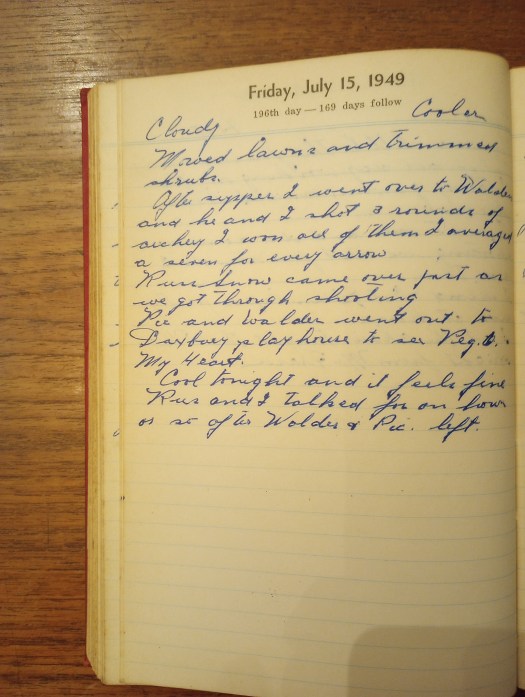 Friday, July 15, 1949
196th day — 169 days follow
Cloudy Cooler
Mowed lawns and trimmed
shrubs.
After supper I went over to Walder
and he and I shot 3 rounds of
archery I won all of them I averaged
a seven for every arrow
Russ Snow came over just as
we got through shooting
Pic and Walder went out to
Duxbury playhouse to see Peg. O.
My Heart.
Cool tonight and it feels fine
Rus and I talked for an hour
or so after Walder & Pic. left.